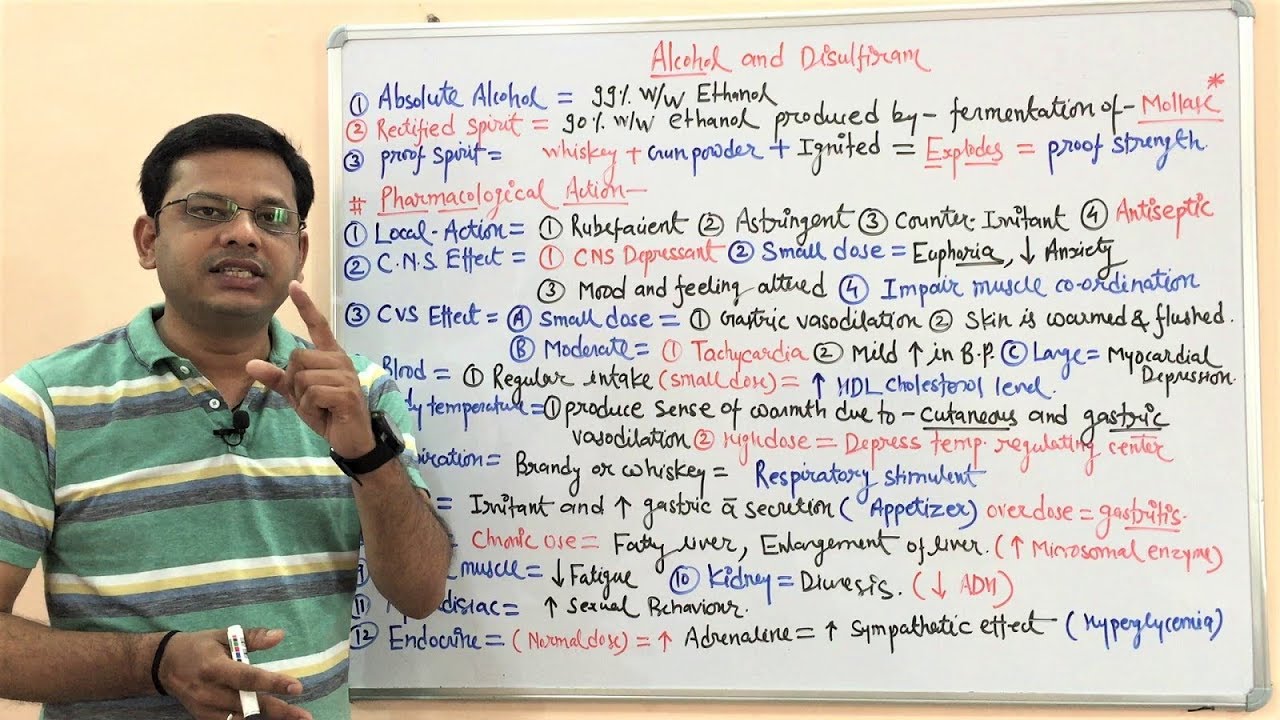 Alcohol and Disulfiram
① Absolute Alcohol = 99% w/w Ethanol
② Rectified spirit = 90% w/w ethanol produced by - fermentation of - Mollase *
③ proof spirit = whiskey + Gunpowder + Ignited = Explodes = proof strength
# Pharmacological Action -
① Local-Action = ① Rubefacient ② Astringent ③ Counter-Irritant ④ Antiseptic
② C.N.S. Effect = ① CNS Depressant ② Small dose = Euphoria, ↓ Anxiety
③ Mood and feeling altered ④ Impair muscle co-ordination
③ CVS Effect = Ⓐ Small dose = ① Gastric vasodilation ② Skin is warmed & flushed.
Ⓑ Moderate = ① Tachycardia ② Mild ↑ in B.P. Ⓒ Large = Myocardial Depression.
Blood = ① Regular intake (small dose) = ↑ HDL cholesterol level.
dy temperature = ① produce sense of warmth due to - cutaneous and gastric
vasodilation ② High dose = Depress temp. regulating center
iration = Brandy or whiskey = Respiratory stimulent
= Irritant and ↑ gastric ā secretion (Appetizer) overdose = gastritis.
Chronic use = Fatty liver, Enlargement of liver. (↑ Microsomal enzyme)
muscle = ↓ Fatigue ⑩ Kidney = Diuresis. (↓ ADH)
⑪ disiac = ↑ Sexual Behaviour.
⑫ Endocrine = (Normal dose) = ↑ Adrenalene = ↑ Sympathetic effect (Hyperglycemia)